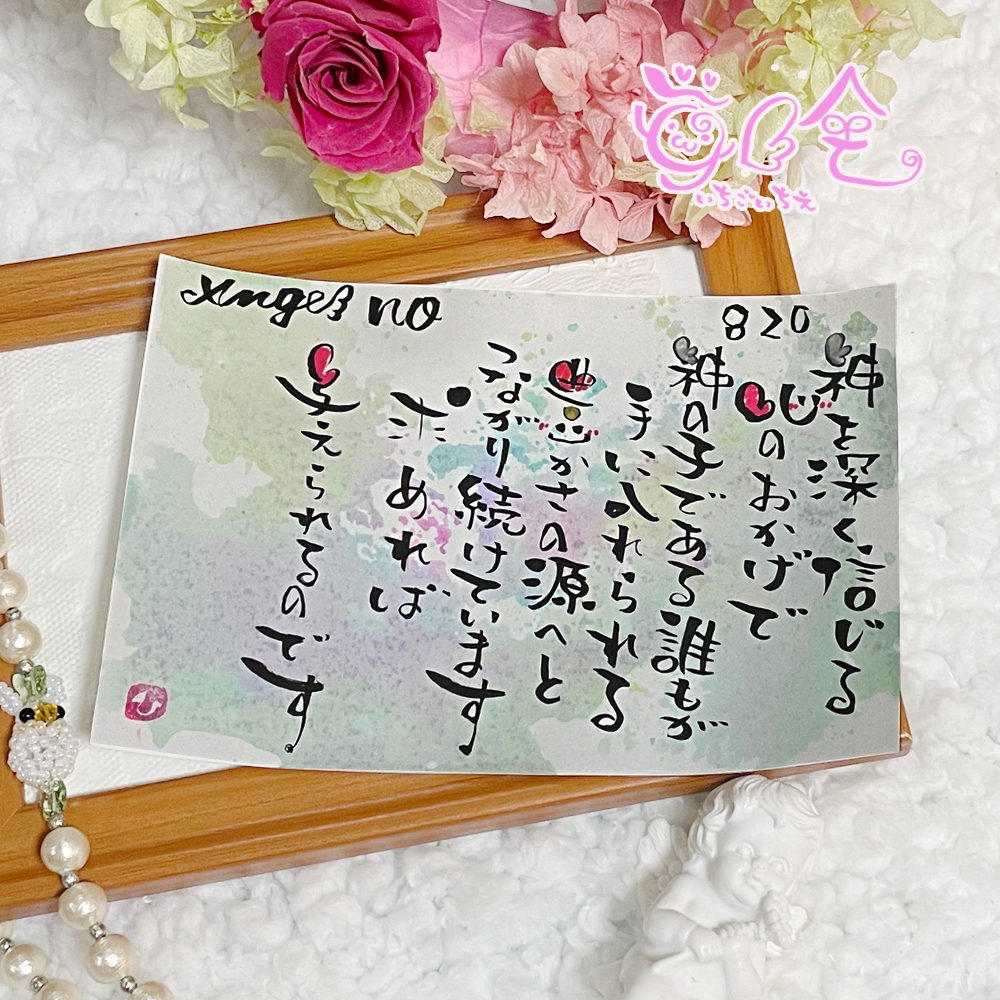 いちごいちえ
Angel no
820
神を深く信じる
心のおかげで
神の子である誰もが
手に入れられる
豊かさの源へと
つながり続けています
求めれば
与えられるのです。